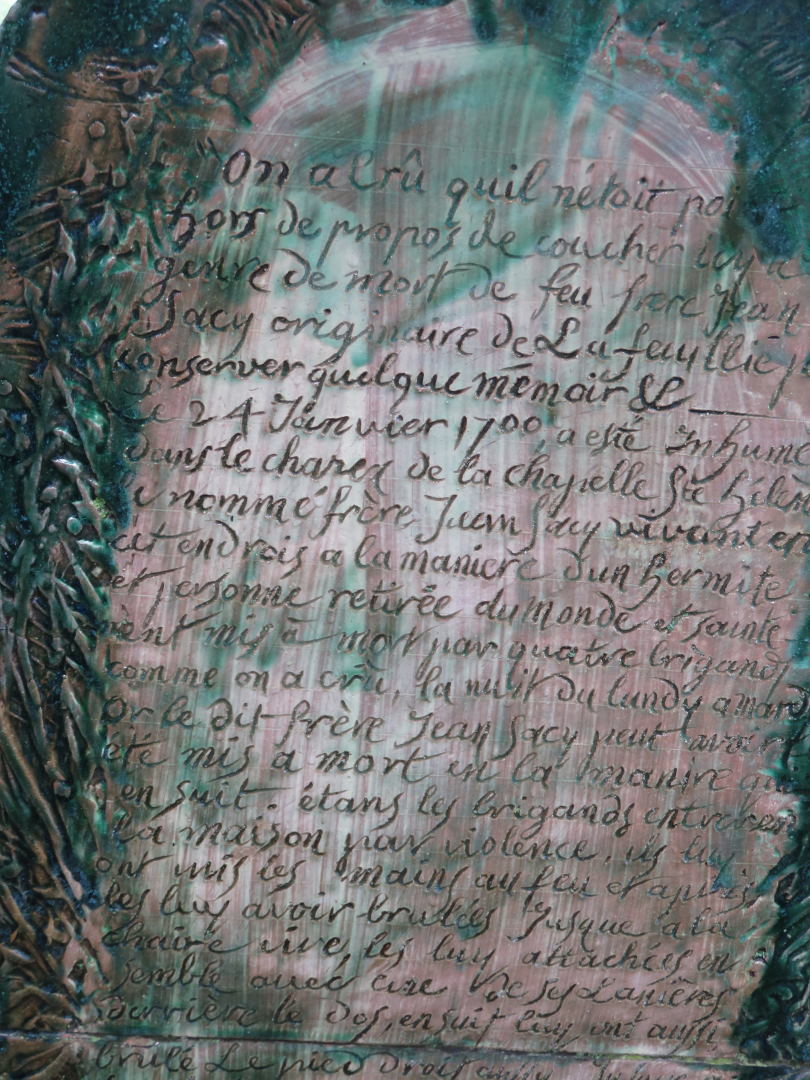 "On a Crû quil n'étoit poi
hors de propos de coucher icy le
genre de mort de feu frere Jean
Sacy originaire de La feuillié p
conserver quelque mémoir &c
Le 24 Janvier 1700, a esté Inhumé
dans le charex de la chapelle Ste hélèn
le nommé frère Jean Sacy vivant en
cet endrois a la maniere d'un hermite
et personne retirée du monde et sainte-
mènt mis à mort par quatre brigands
comme on a crû, la nuit du lundy a mard
Or le dit frère Jean Sacy peut avoir
été mis a mort en la manire qui
en suit. étans les brigands entré en
la maison par violence, ils luy
ont mis les mains au feu et après
les luy avoir brulées Jusque à la
chaire vive, les luy attachées en-
semble avec de sy Lanières
darrière le dos, ensuit luy ont aussi
brulé Le pied droit